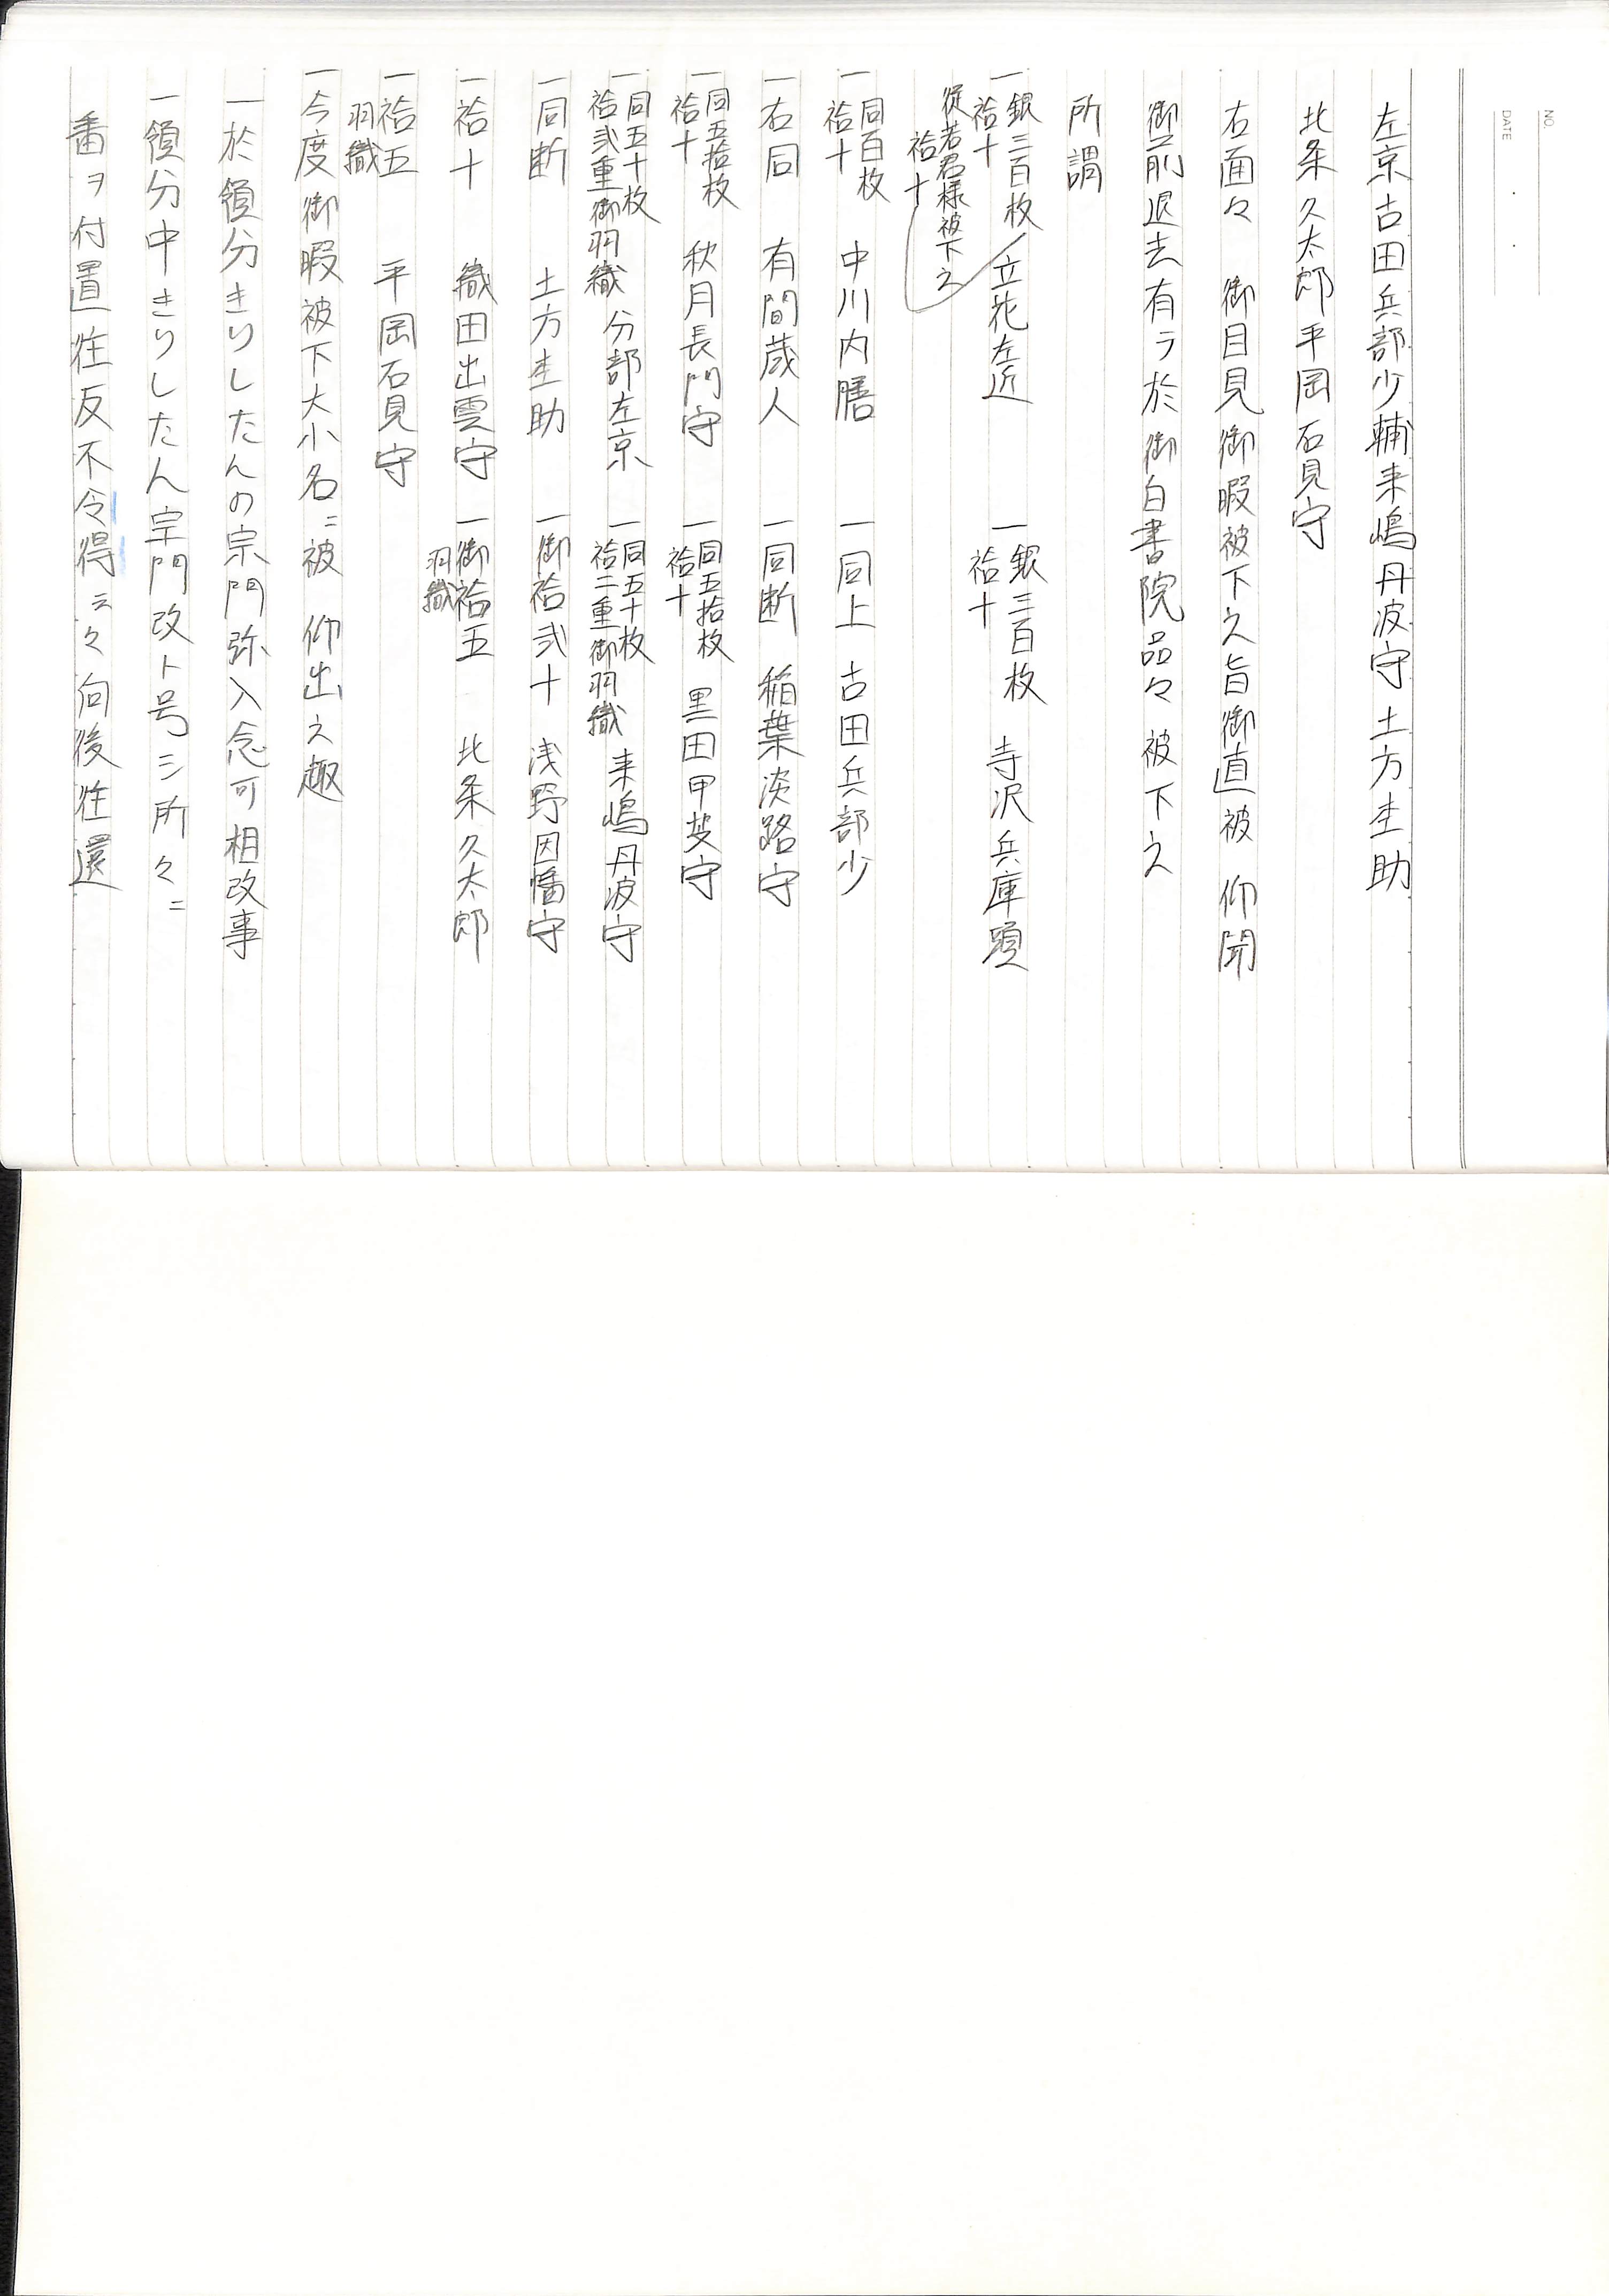 NO.
DATE
左京古田兵部少輔来嶋丹波守土方圭助
北条久太郎平岡石見守
右面々 御目見御暇被下之旨御直被 仰聞
御前退去有テ於御白書院品々被下之
所謂
一銀三百枚 袷十 立花左近 一銀三百枚 袷十 寺沢兵庫頭
従若君様被下之 袷十
一同百枚 袷十 中川内膳 一同上 古田兵部少
一右同 有間蔵人 一同断 稲葉淡路守
一同五拾枚 袷十 秋月長門守 一同五拾枚 袷十 黒田甲斐守
一同五十枚 袷弐重御羽織 分部左京 一同五十枚 袷二重御羽織 来嶋丹波守
一同断 土方圭助 一御袷弐十 浅野因幡守
一袷十 織田出雲守 一御袷五 羽織 北条久太郎
一袷五 羽織 平岡石見守
一今度御暇被下大小名ニ被 仰出之趣
一於領分きりしたんの宗門弥入念可相改事
一領分中きりしたん宗門改ト号シ所々ニ
番ヲ付置往反不令得云々向後往還